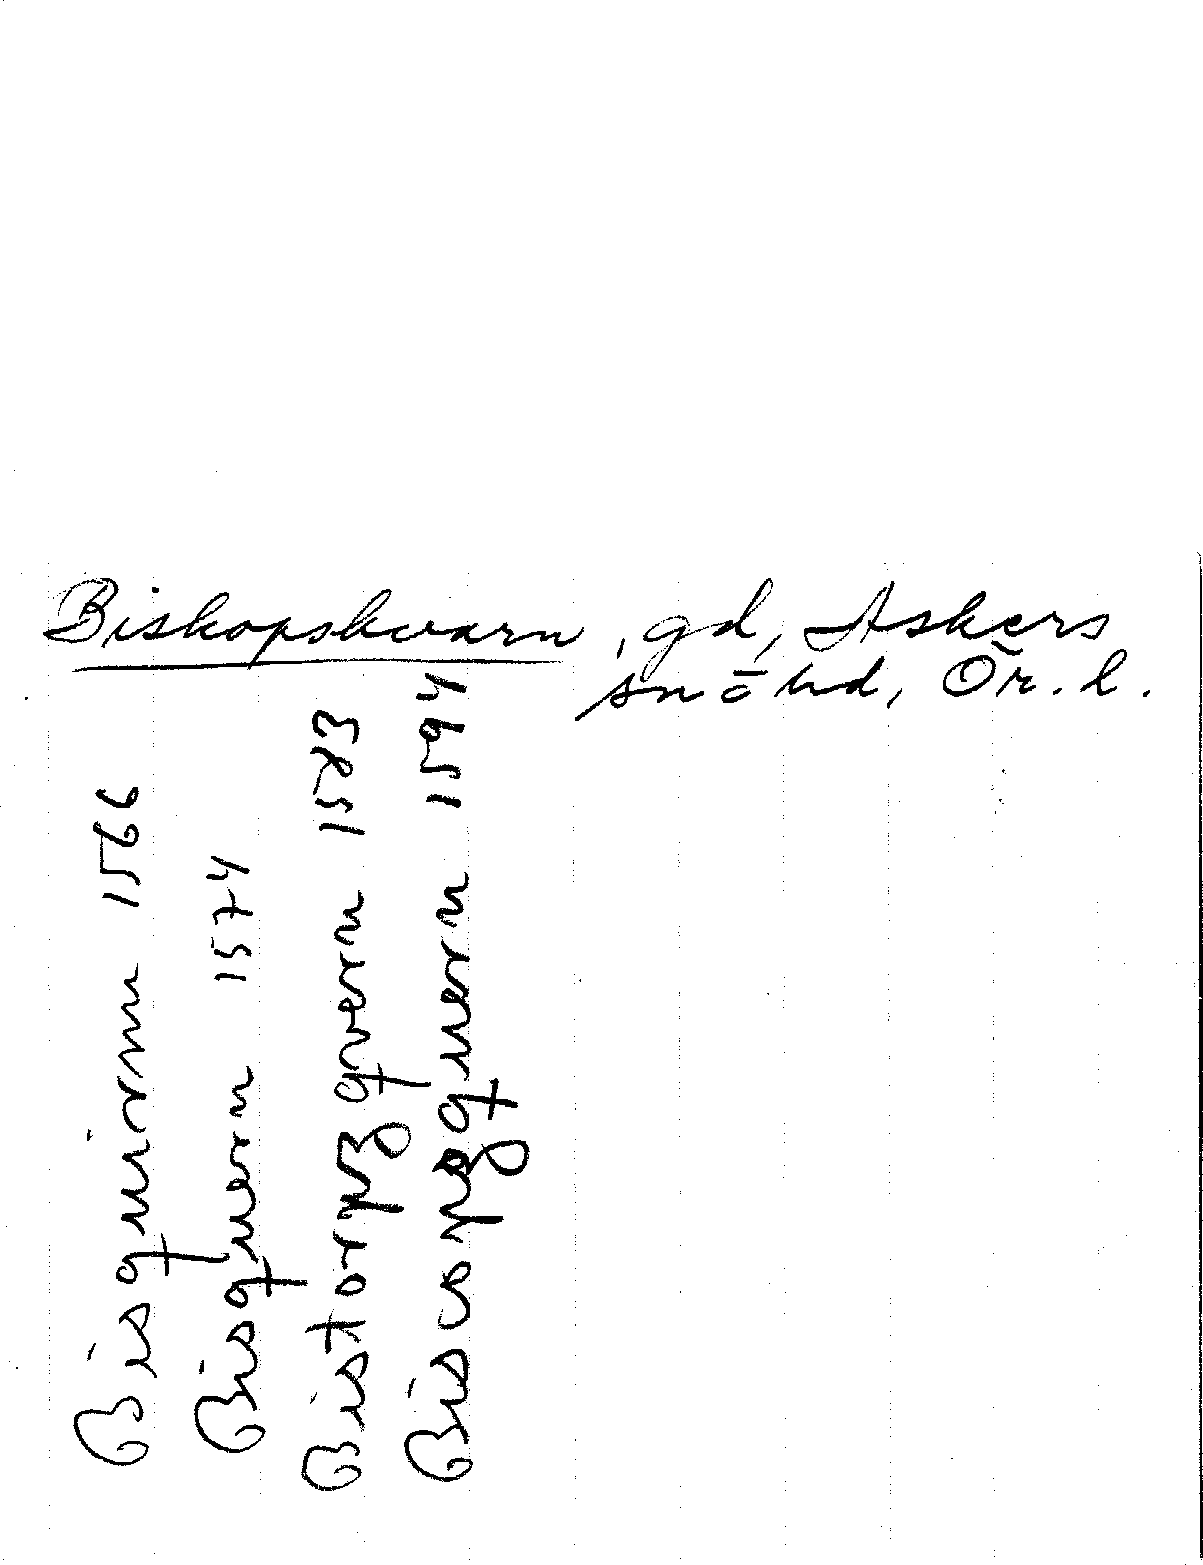 Biskopskvarn, gd, Askers
sn ō hd, Ör. l.
Bisquirnn 1566
Bisquern 1574
Bistorpz qvern 1583
Biscopz quern 1594